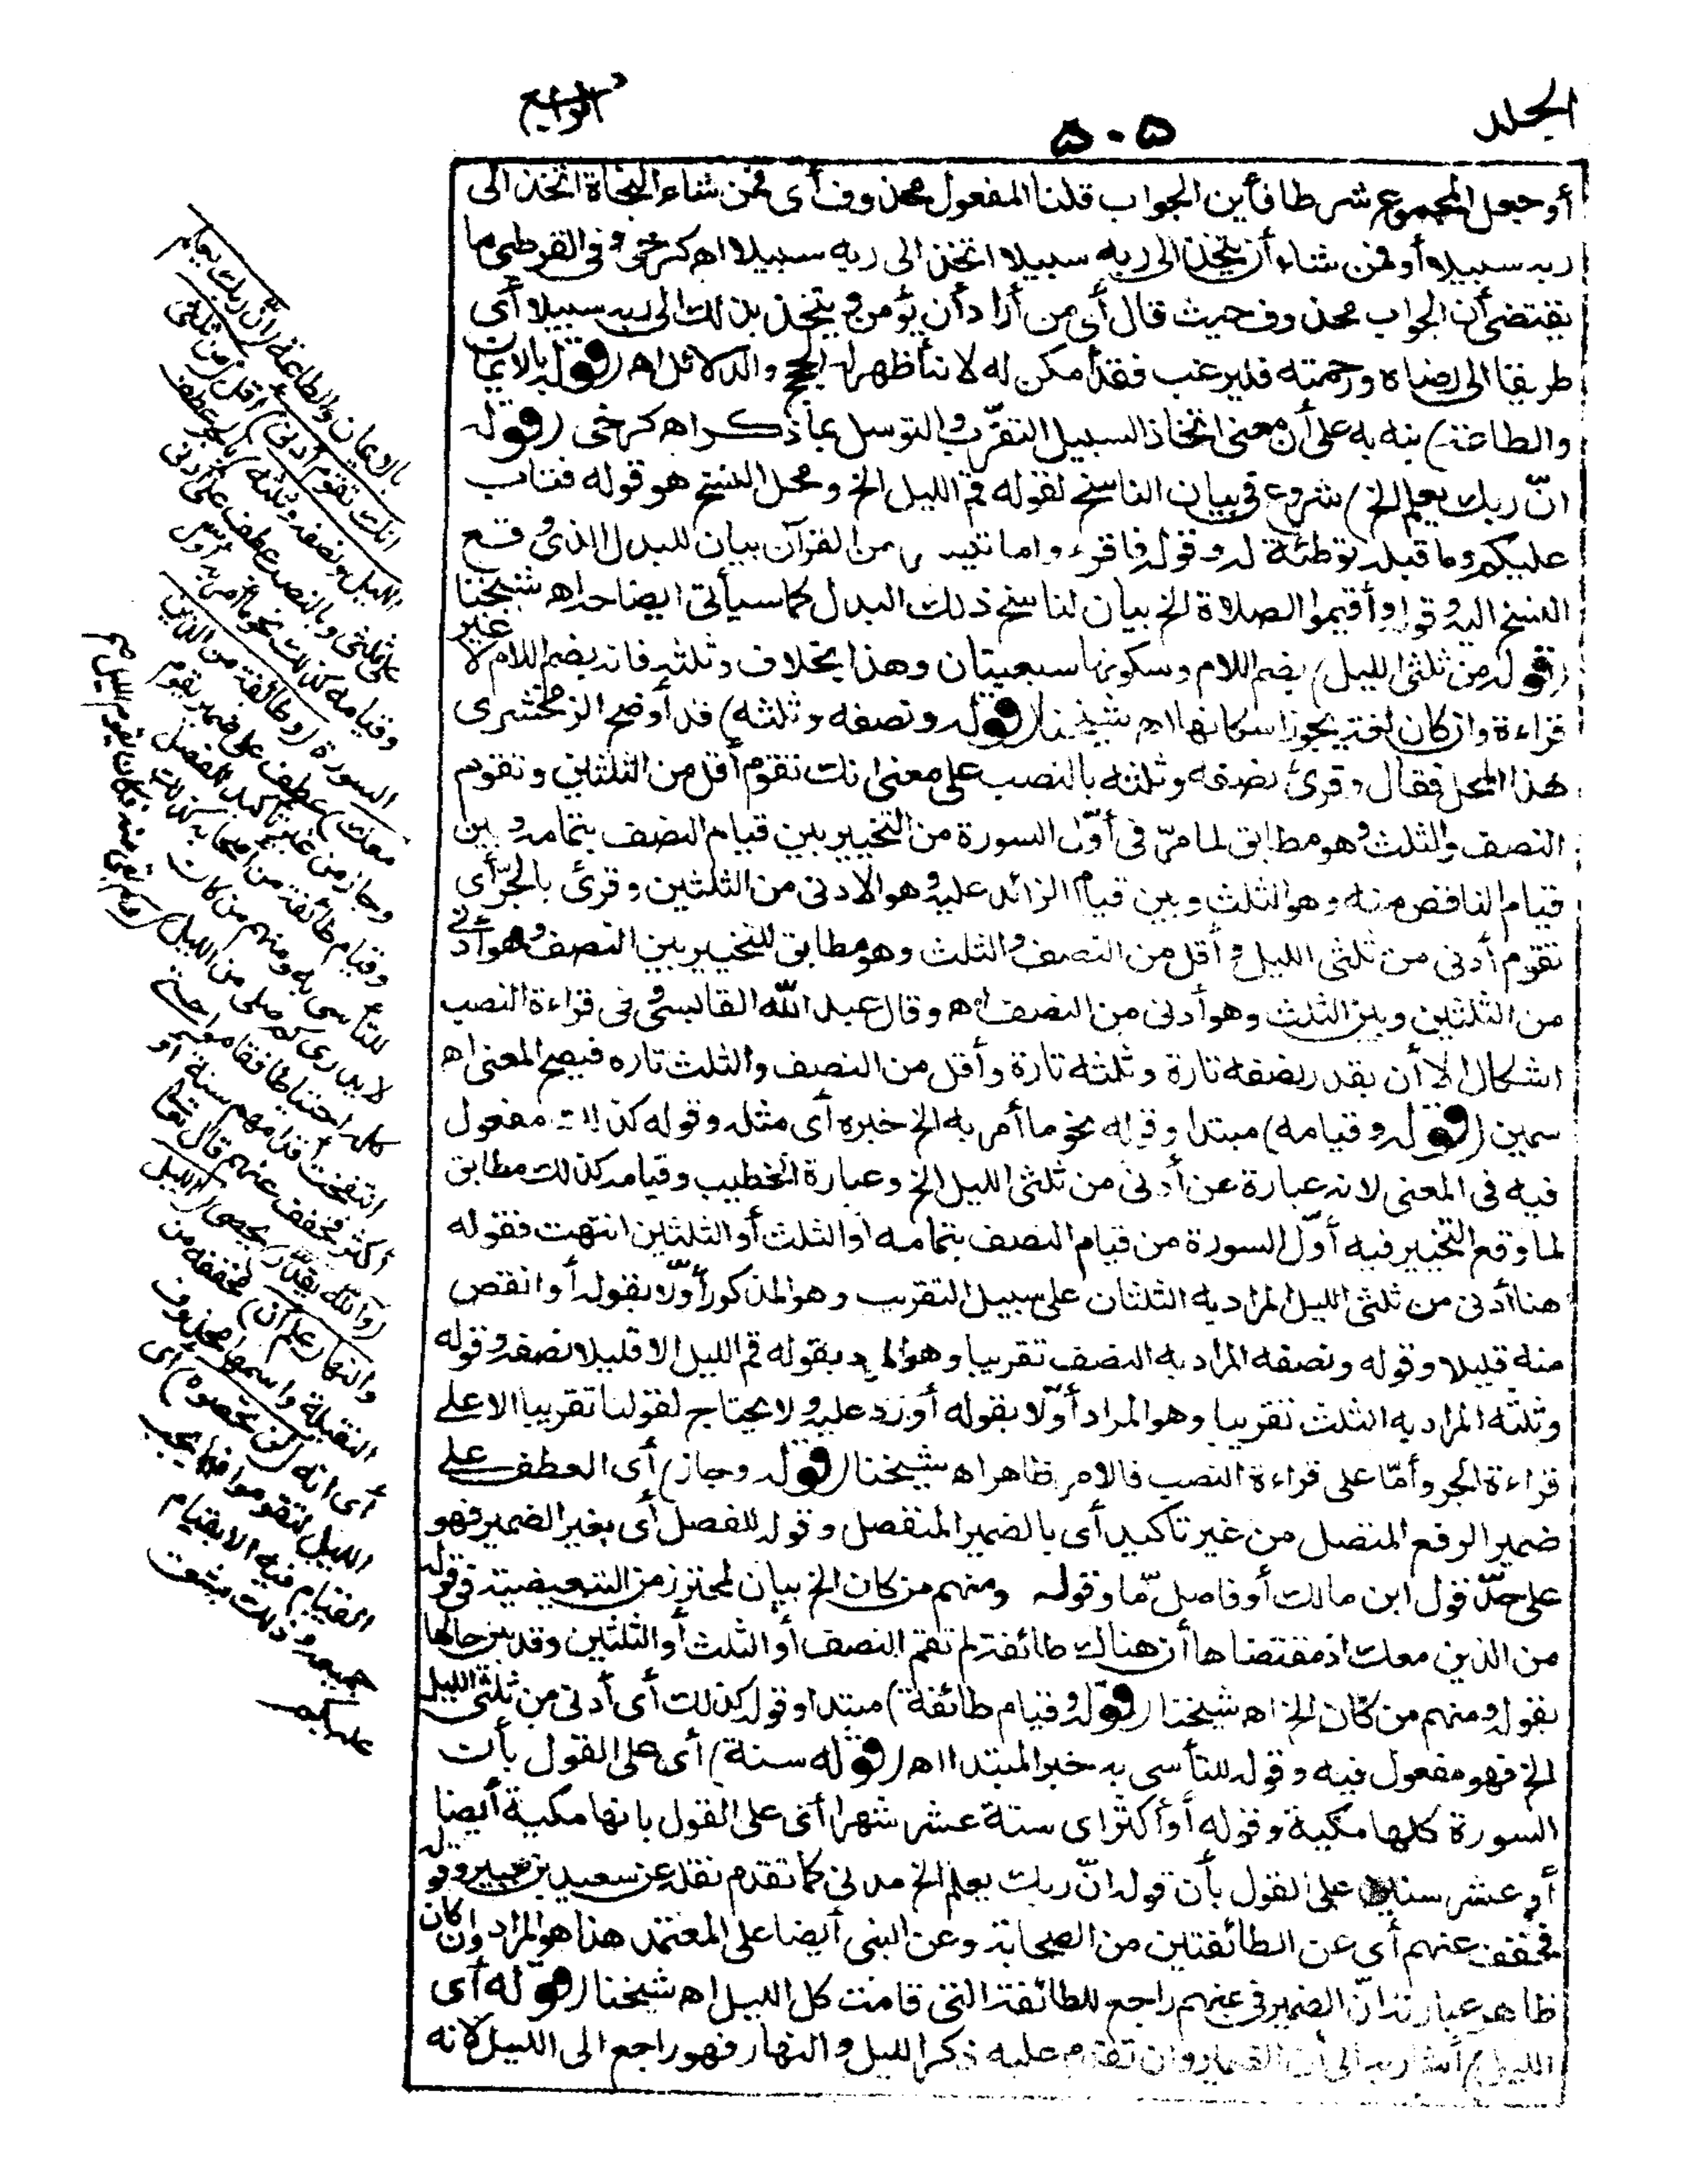 الجلد
٥٠٥
الرابع
أو جعل المجموع شرطا فأين الجواب قلنا المفعول محذوف أى فمن شاء النجاة اتخذ الى
ربه سبيلا أو فمن شاء أن يتخذ الى ربه سبيلا اتخذ الى ربه سبيلا اه كرخى وفى القرطبى ما
يقتضى أن الجواب محذوف حيث قال أى من أراد أن يؤمن ويتخذ بذلك الى ربه سبيلا أى
طريقا الى رضاه ورحمته فليرغب فقد أمكن له لانه أظهر له الحجج والدلائل اه (قوله بالايمان
والطاعة) نبه به على أن معنى اتخاذ السبيل التقرّب والتوسل بما ذكر اه كرخى (قوله
انّ ربك يعلم الخ) شروع فى بيان الناسخ لقوله قم الليل الخ ومحل النسخ هو قوله فتاب
عليكم وما قبله توطئة له وقوله فاقرءوا ما تيسر من القرآن بيان للبدل الذى وقع
النسخ اليه وقوله وأقيموا الصلاة الخ بيان لناسخ ذلك البدل كما سيأتى ايضاحه اه شيخنا
(قوله من ثلثى الليل) بضم اللام وسكونها سبعيتان وهذا بخلاف وثلثه فانه بضم اللام لا غير
قراءة وان كان لغة يجوز اسكانها اه شيخنا (قوله ونصفه وثلثه) قد أوضح الزمخشرى
هذا المحل فقال وقرئ نصفه وثلثه بالنصب على معنى انك تقوم أقل من الثلثين وتقوم
النصف والثلث وهو مطابق لما مرّ فى أوّل السورة من التخيير بين قيام النصف بتمامه وبين
قيام الناقص منه وهو الثلث وبين قيام الزائد عليه وهو الادنى من الثلثين وقرئ بالجرّ أى
تقوم أدنى من ثلثى الليل وأقل من النصف والثلث وهو مطابق للتخيير بين النصف وهو أدنى
من الثلثين وبين الثلث وهو أدنى من النصف اه وقال عبد الله الفاسى وفى قراءة النصب
اشكال الا أن يقدر نصفه تارة وثلثه تارة وأقل من النصف والثلث تاره فيصح المعنى اه
سمين (قوله وقيامه) مبتدا وقوله نحو ما أمر به الخ خبره أى مثله وقوله كذلك مفعول
فيه فى المعنى لانه عبارة عن أدنى من ثلثى الليل الخ وعبارة الخطيب وقيامه كذلك مطابق
لما وقع التخيير فيه أوّل السورة من قيام النصف بتمامه أو الثلث أو الثلثين انتهت فقوله
هنا أدنى من ثلثى الليل المراد به الثلثان على سبيل التقريب وهو المذكور أوّلا بقوله أو انقص
منه قليلا وقوله ونصفه المراد به النصف تقريبا وهو المراد بقوله قم الليل الا قليلا نصفه وقوله
وثلثه المراد به الثلث تقريبا وهو المراد أوّلا بقوله أو زد عليه ولا يحتاج لقولنا تقريبا الا على
قراءة الجر وأمّا على قراءة النصب فالامر ظاهر اه شيخنا (قوله وجاز) أى العطف على
ضمير الرفع المتصل من غير تاكيد أى بالضمير المنفصل وقوله للفصل أى بغير الضمير فهو
على حدّ قول ابن مالك أو فاصل مّا وقوله ومنهم من كان الخ بيان لمحترز من التبعيضية فى قوله
من الذين معك اذ مقتضاها أن هناك طائفة لم تقم النصف أو الثلث أو الثلثين وقد بين حالها
بقوله ومنهم من كان الخ اه شيخنا (قوله وقيام طائفة) مبتدا وقوله كذلك أى أدنى من ثلثى الليل
الخ فهو مفعول فيه وقوله للتأسى به خبر المبتدا اه (قوله سنة) أى على القول بأن
السورة كلها مكية وقوله أو أكثر اى ستة عشر شهرا أى على القول بانها مكية أيضا
أو عشر سنين على القول بأن قوله انّ ربك يعلم الخ مدنى كما تقدم نقله عن سعيد بن جبير وقوله
فخفف عنهم أى عن الطائفتين من الصحابة وعن النبى أيضا على المعتمد هذا هو المراد وان كان
ظاهر عبارته انّ الضمير فى عنهم راجع للطائفة التى قامت كل الليل اه شيخنا (قوله أى
الليل) أشار به الى أن الضمير وان تقدم عليه ذكر الليل والنهار فهو راجع الى الليل لانه
بالايمان والطاعة (انّ ربك يعلم
انك تقوم أدنى) أقل (من ثلثى
الليل ونصفه وثلثه) بالجر عطف
على ثلثى وبالنصب عطف على أدنى
وقيامه كذلك نحو ما أمر به أوّل
السورة (وطائفة من الذين
معك) عطف على ضمير تقوم
وجاز من غير تأكيد للفصل
وقيام طائفة من أصحابه كذلك
للتأسى به ومنهم من كان
لا يدرى كم صلى من الليل وكم بقى منه فكان يقوم الليل
كله احتياطا فقاموا حتى
انتفخت أقدامهم سنة أو
أكثر فخفف عنهم قال تعالى
(والله يقدّر) يحصى (الليل
والنهار علم أن) مخففة من
الثقيلة واسمها محذوف
أى انه (لن تحصوه) أى
الليل لتقوموا فيما يجب
القيام فيه الا بقيام
جميعه وذلك يشق
عليكم